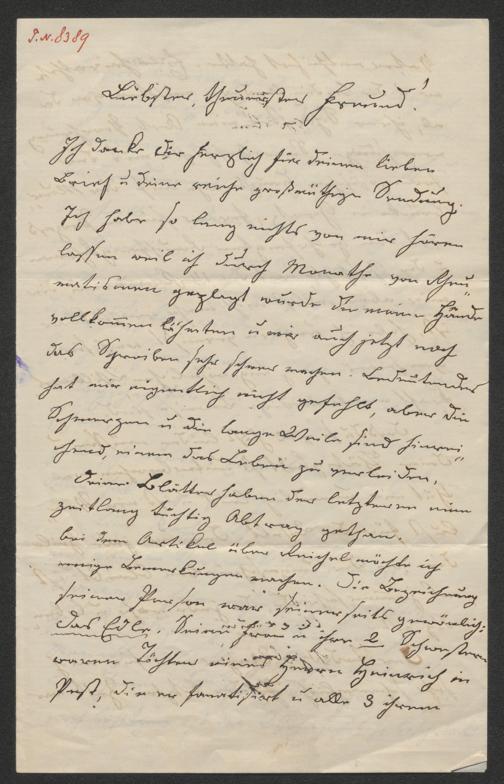 I.N. 8389
Liebster, theuerster Freund!
Ich danke Dir herzlich für deinen lieben
Brief u deine reiche großmüthige Sendung.
Ich habe so lang nichts von mir hören
lassen weil ich durch Monathe von Rheu„
matismen geplagt wurde die meine Hände
vollkom̅en lähmten u mir auch jetzt noch
das Schreiben sehr schwer machen. Bedeutendes
hat mir eigentlich nicht gefehlt, aber die
Schmerzen u die lange Weile sind hinrei„
chend, einem das Leben zu verleiden.
Deine Blätter haben der letzteren eine
zeitlang tüchtig Abtrag gethan.
bei dem Artikel über Reichel möchte ich
einige Bemerkungen machen. Die Bezeichnung
seiner Person war seinerseits gewöhnlich:
das Edle. Seine Frau u ihre 2 Schwestern
waren Töchter eines Herrn Heinrich in
Pest, die er fanatisirt u alle 3 ihrem